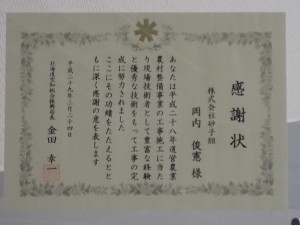 感謝状
株式会社砂子組
岡内 俊憲 様
あなたは平成二十八年道営農業
農村整備事業の工事施工に当た
り現場技術者として豊富な経験
と優秀な技術をもって工事の完
成に努力されました
ここにその功績をたたえるとと
もに深く感謝の意を表します
平成二十九年三月二十四日
北海道空知総合振興局長
金田 幸一